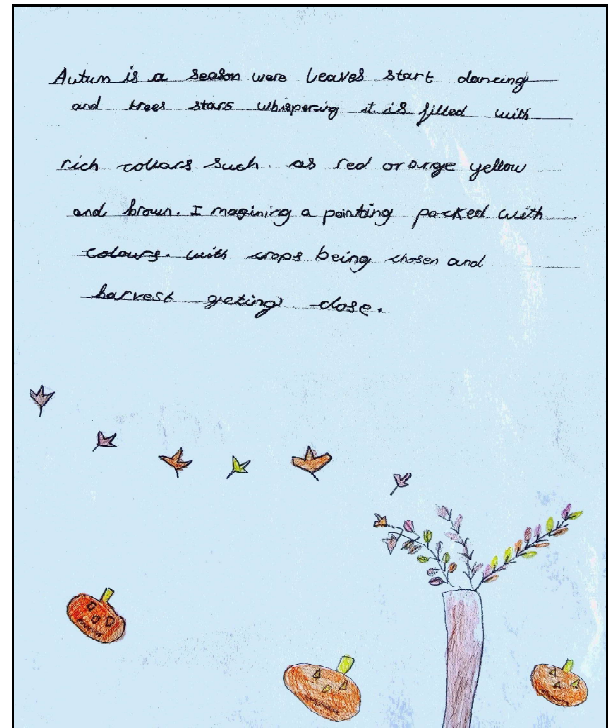 Autum is a season were leaves start dancing
and trees stars whispering it is filled with
rich collars such as red orange yellow
and brown. I magining a painting packed with
colours. with crops being chosen and
harvest geting close.